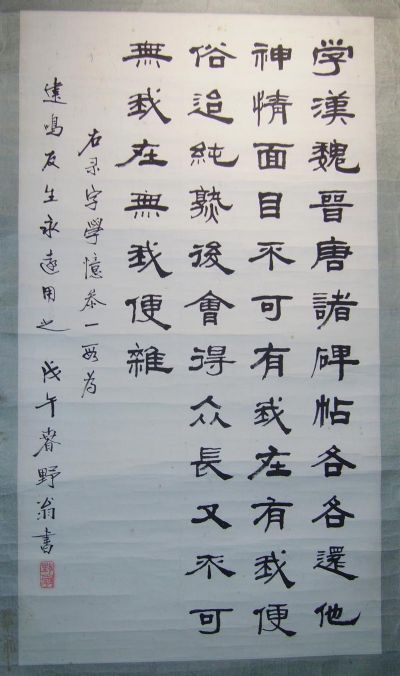 学漢魏晉唐諸碑帖各各還他
神情面目不可有我在有我便
俗迨純熟後會得众長又不可
無我在無我便雜
右录字學憶叅一段为
建鳴友生永遠用之 戊午春野翁書